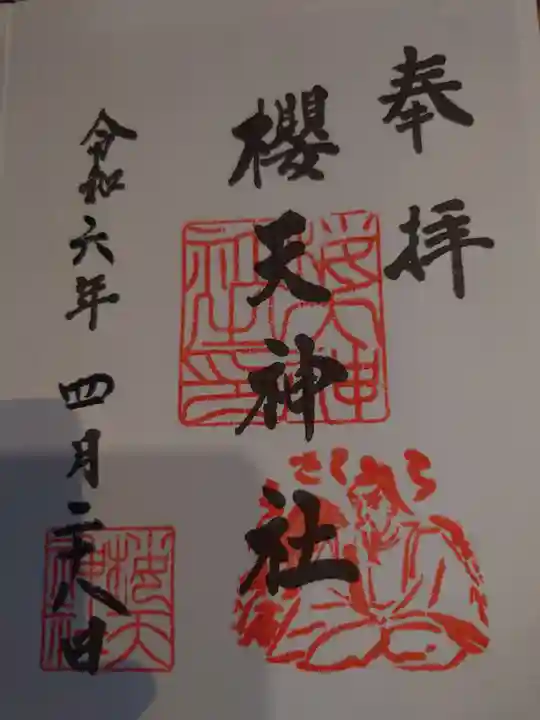 奉拝
櫻天神社
令和六年四月二十八日
桜天神社印
さくら
桜天神社